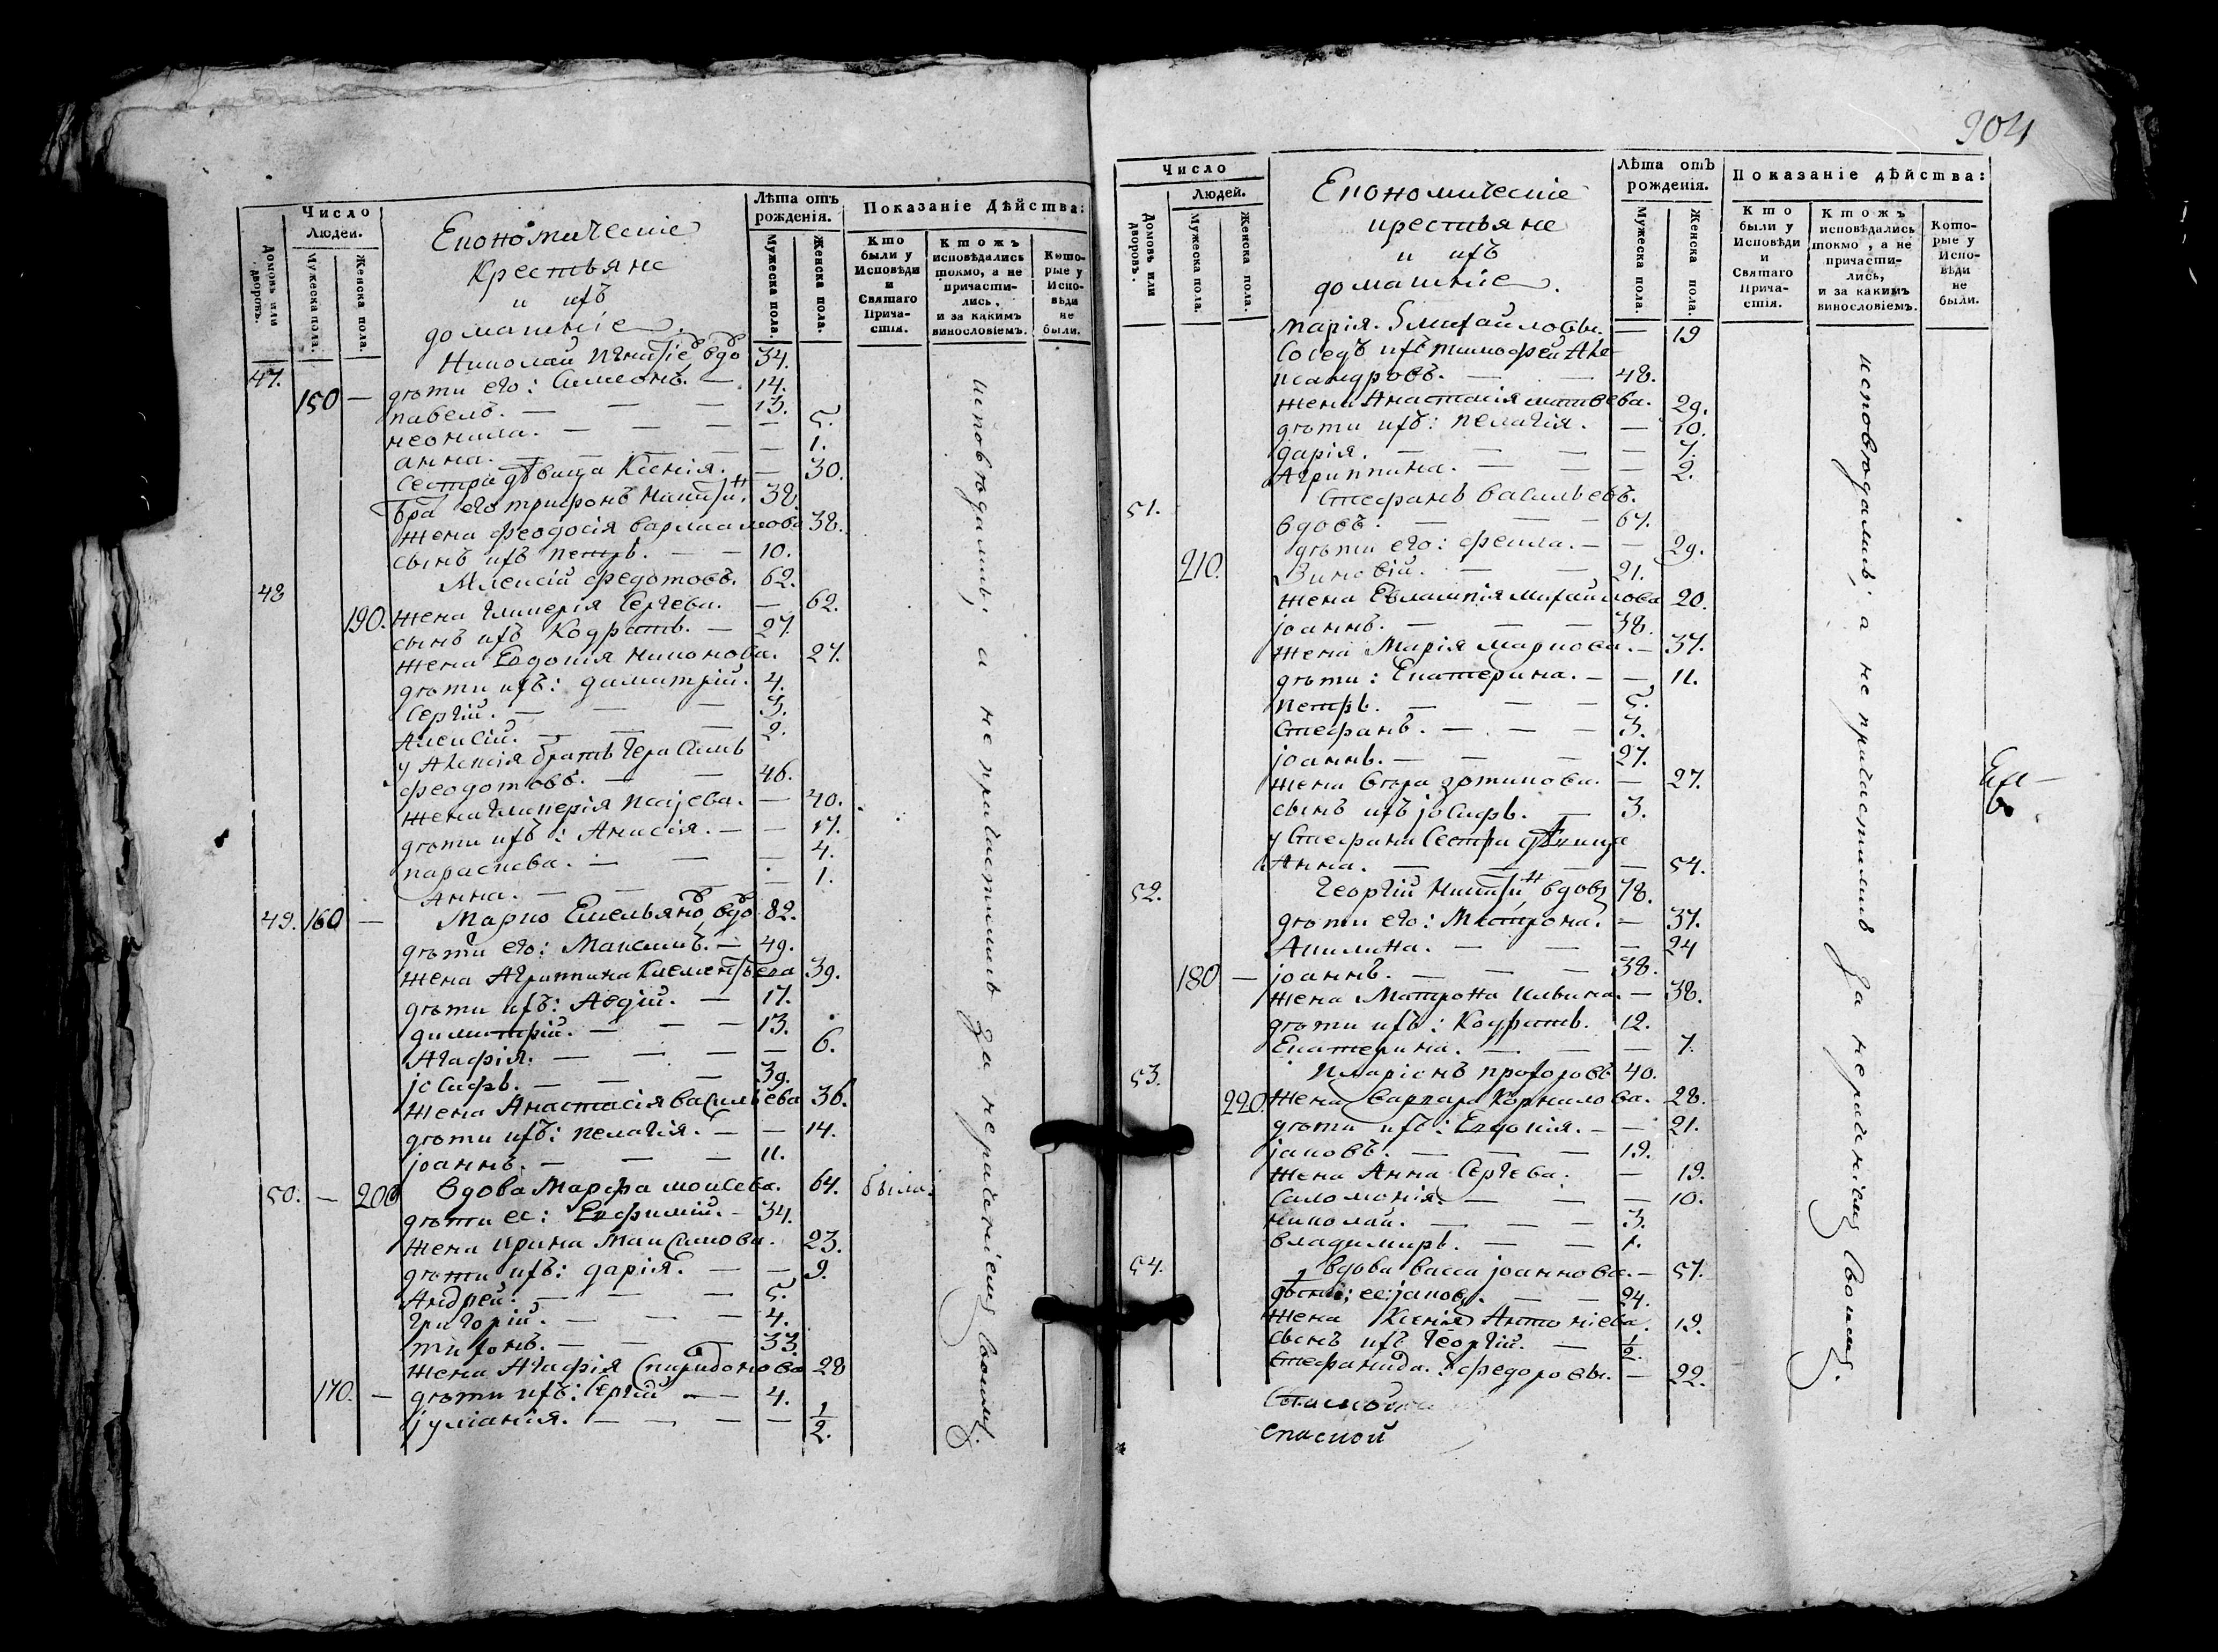 Число
Людей.
Домовъ или дворовъ.
Мужеска пола.
Женска пола.
Економическіе
Крестьяне
и ихъ
домашніе.
Лѣта отъ рожденія.
Мужеска пола.
Женска пола.
Показаніе Дѣйства:
Кто были у Исповѣди и Святаго Прича-стія.
Ктожъ исповѣдались токмо, а не причасти-лись, и за какимъ винословіемъ.
Кото-рые у Испо-вѣди не были.
47. Николай вдо 34.
150 — дѣти его: Симеонъ. — 14.
павелъ. — — — 13.
неонила. — — — — 5.
анна. — — — — 1.
Сестра дѣвица Ксенія. — 30.
бра его трифонъ 38.
жена феодосія варлаамова 38.
сынъ ихъ петръ. — — 10.
48 Алексій федотовъ. 62.
190. жена гликерія Сергѣева. — 62.
сынъ ихъ Кодратъ. — 27.
жена Евдокія никонова. 27.
дѣти ихъ: димитрій. 4.
Сергій. — — — 3.
Алексій. — — — 2.
у Алексія братъ герасимъ
федотовъ. — — 46.
жена гликерія — 40.
дѣти ихъ: Анисія. — — 17.
параскева. — — — 4.
Анна. — — — 1.
49. 160 — Марко Емельяно вдо 82.
дѣти его: Максимъ. — 49.
жена Агриппина 39.
дѣти ихъ: Авдій. — 17.
димитрій. — — — 13.
Агафія. — — — — 6.
іосифъ. — — — 39.
жена Анастасія васильева 36.
дѣти ихъ: пелагія. — — 14.
іоаннъ. — — — 11.
50. — 200 вдова Марфа моисеева. 64. была.
дѣти ее: Евфимій. — 34.
жена ирина Максимова. 23.
дѣти ихъ: дарія. — — 9.
Андрей. — — — 5.
григорій. — — — 4.
тихонъ. — — — 33.
жена Агафія Спиридонова 28
170. — дѣти ихъ: Сергій — — 4.
іуліанія. — — — — 1/2.
исповѣдались, а не причастились за нерадѣніемъ своимъ.
904
Число
Людей.
Домовъ или дворовъ.
Мужеска пола.
Женска пола.
Економическіе
крестьяне
и ихъ
домашніе.
Лѣта отъ рожденія.
Мужеска пола.
Женска пола.
Показаніе дѣйства:
Кто были у Исповѣди и Святаго Прича-стія.
Ктожъ исповѣдались токмо, а не причасти-лись, и за какимъ винословіемъ.
Кото-рые у Испо-вѣди не были.
Марія. михайловы. — 19
Соседъ ихъ тимофей Але-
ксандровъ. — — 48.
жена Анастасія матвеева. 29.
дѣти ихъ: пелагія. — 10.
дарія. — — — — 7.
Агриппина. — — — 2.
51. Стефанъ васильевъ.
вдовъ. — — — 67.
дѣти его: фекла. — — 29.
210. Зиновій. — — 21.
жена Евлампія михайлова 20.
іоаннъ. — — — 38.
жена Марія маркова. — 37.
дѣти: Екатерина. — — 11.
петръ. — — — 5.
Стефанъ. — — — 3.
іоаннъ. — — — 27.
жена вѣра — 27.
сынъ ихъ іосифъ. — 3.
у Стефана Сестра дѣвица
Анна. — — — — 54.
52. Георгій вдовъ 78.
дѣти его: Матрона. — 37.
Акилина. — — — 24
180 — іоаннъ. — — — 38.
жена Матрона ильина. — 38.
дѣти ихъ: Кодратъ. 12.
Екатерина. — — — 7.
53. иларіонъ прохоровъ 40.
220. жена варвара Корнилова. 28.
дѣти ихъ: Евдокія. — — 21.
іаковъ. — — — 19.
жена Анна Сергѣева. — 19.
Саломонія. — — — 10.
николай. — — — 3.
владимиръ. — — 1.
54. вдова васса іоаннова. — 57.
ее: іаковъ. — — 24.
жена Ксенія Антоніева. 19.
сынъ ихъ Георгій. — 1/2.
Стефанида. федоровы. — 22.
спаской
исповѣдались, а не причастились за нерадѣніемъ своимъ.